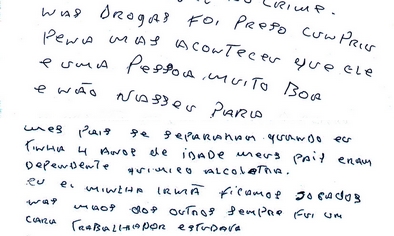 CRIME.
NAS DROGAS FOI PRESO CUNPRIU
PENA MAS ACONTECEU QUE ELE
E UMA PESSOA MUITO BOA
E NÃO NASSEU PARA
MEUS PAIS SE SEPARARAM QUANDO EU
TINHA 4 ANOS DE IDADE MEUS PAIS ERAM
DEPENDENTE QUIMICO ALCOLATRA.
EU E MINHA IRMÃ FICAMOS JOGADOS
NAS MAOS DOS OUTROS SEMPRE FUI UM
CARA TRABALHADOR ESTUDAVA